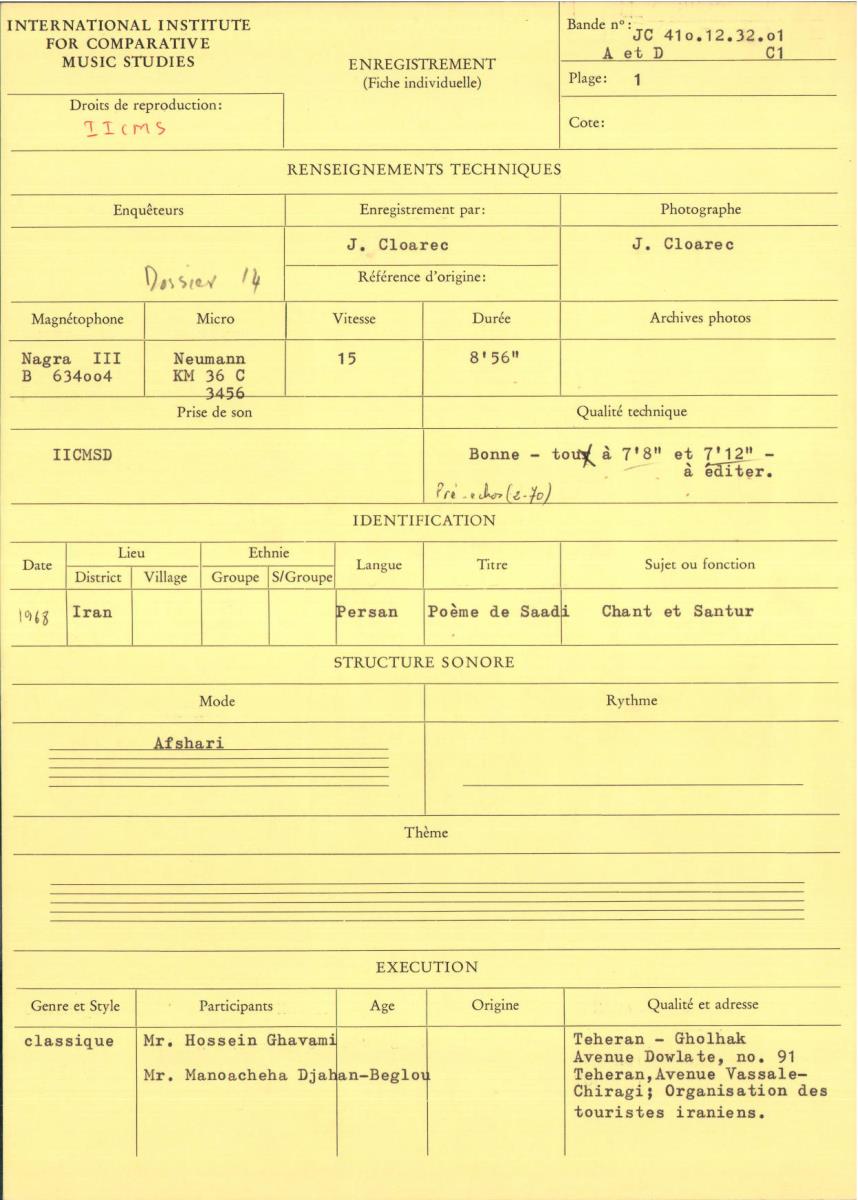 INTERNATIONAL INSTITUTE
FOR COMPARATIVE
MUSIC STUDIES
Droits de reproduction:
IICMS
ENREGISTREMENT
(Fiche individuelle)
Bande nº: JC 41o.12.32.o1
A et D C1
Plage: 1
Cote:
RENSEIGNEMENTS TECHNIQUES
Enquêteurs
Enregistrement par:
Photographe
J. Cloarec
J. Cloarec
Dossier 14
Référence d'origine:
Magnétophone Micro Vitesse Durée Archives photos
Nagra III Neumann 15 8'56"
B 634oo4 KM 36 C
3456
Prise de son Qualité technique
IICMSD Bonne - toux à 7'8" et 7'12" -
à éditer.
Pré-echos (2-70)
IDENTIFICATION
Date Lieu Ethnie Langue Titre Sujet ou fonction
District Village Groupe S/Groupe
1968 Iran Persan Poème de Saadi Chant et Santur
STRUCTURE SONORE
Mode Rythme
Afshari
Thème
EXECUTION
Genre et Style Participants Age Origine Qualité et adresse
classique Mr. Hossein Ghavami Teheran - Gholhak
Avenue Dowlate, no. 91
Mr. Manoacheha Djahan-Beglou Teheran,Avenue Vassale-
Chiragi; Organisation des
touristes iraniens.